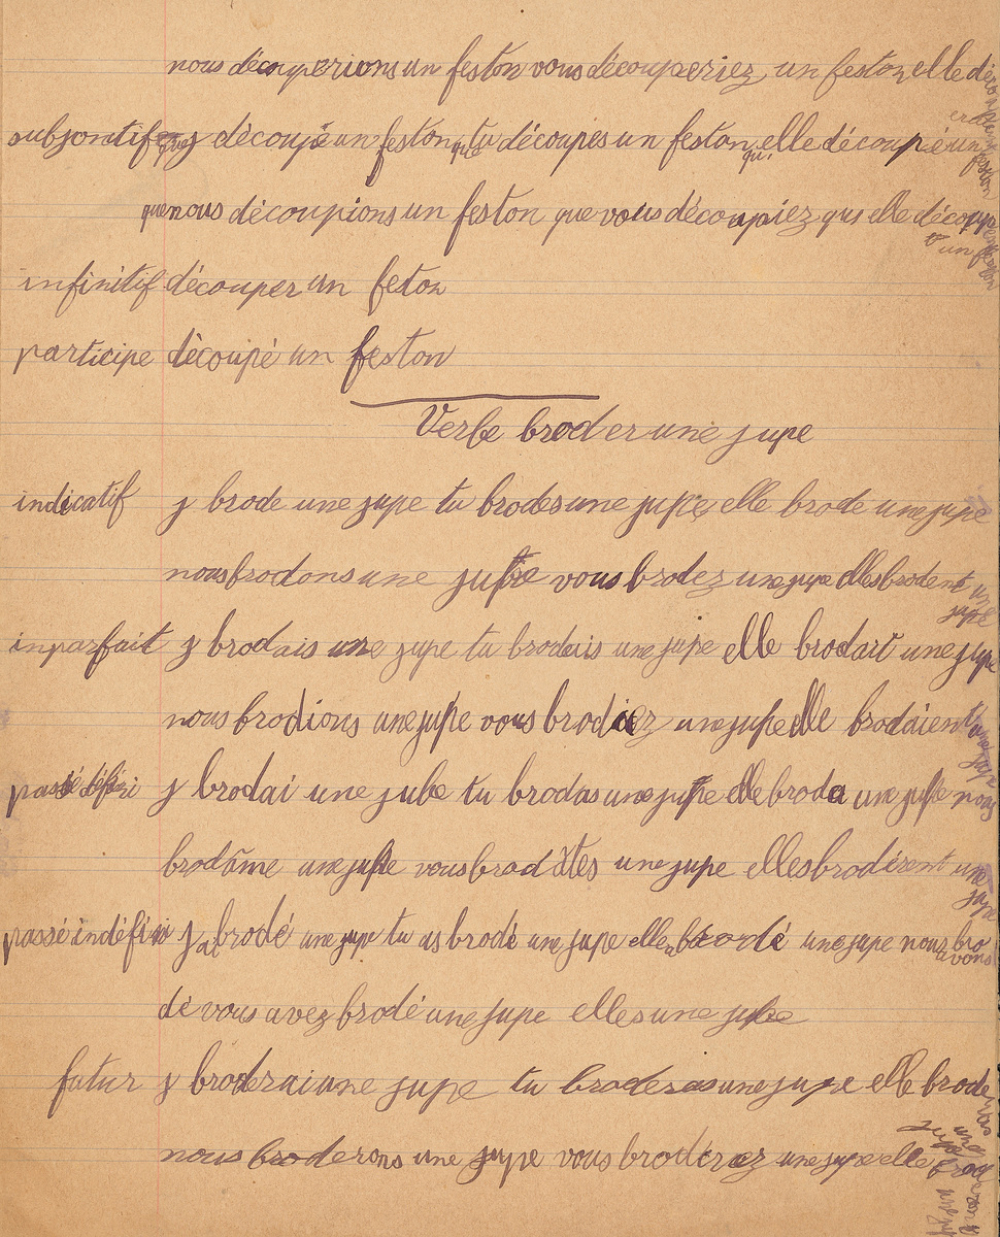 nous découperions un feston vous découperiez un feston elle dé
subjontif que j découpe un feston que tu découpes un feston qu' elle découpe un feston
que nous découpions un feston que vous découpiez qus elle découp
un
infinitif découper un feton
participe découpé un feston
Verbe broder une jupe
indicatif j brode une jupe tu brodes une jupe elle brode une jupe
nous brodons une jupe vous brodez une jupe elles brodent une jupe
imparfait j brodais une jupe tu brodais une jupe elle brodait une jupe
nous brodions une jupe vous brodiez une jupe elle brodaient
passé défini j brodai une jube tu brodas une jupe elle broda une jupe nous
brodâme une jupe vous brodâtes une jupe elles brodèrent une jupe
passé indéfini j ai brodé une jupe tu as brodé une jupe elle a brodé une jupe nous avons bro
dé vous avez brodé une jupe elles une jupe
futur j broderai une jupe tu broderas une jupe elle brode
nous broderons une jupe vous broderez une jupe elle brod